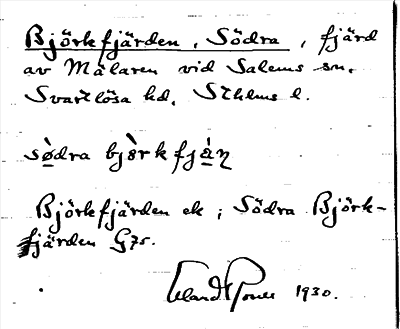 Björkfjärden, Södra, fjärd
av Mälaren vid Salems sn.
Svartlösa hd, Sthlms l.
sǿ̀dra bjǿ̀rkfjà̱ṇ
Björkfjärden ek; Södra Björk-
fjärden G75.
1930.